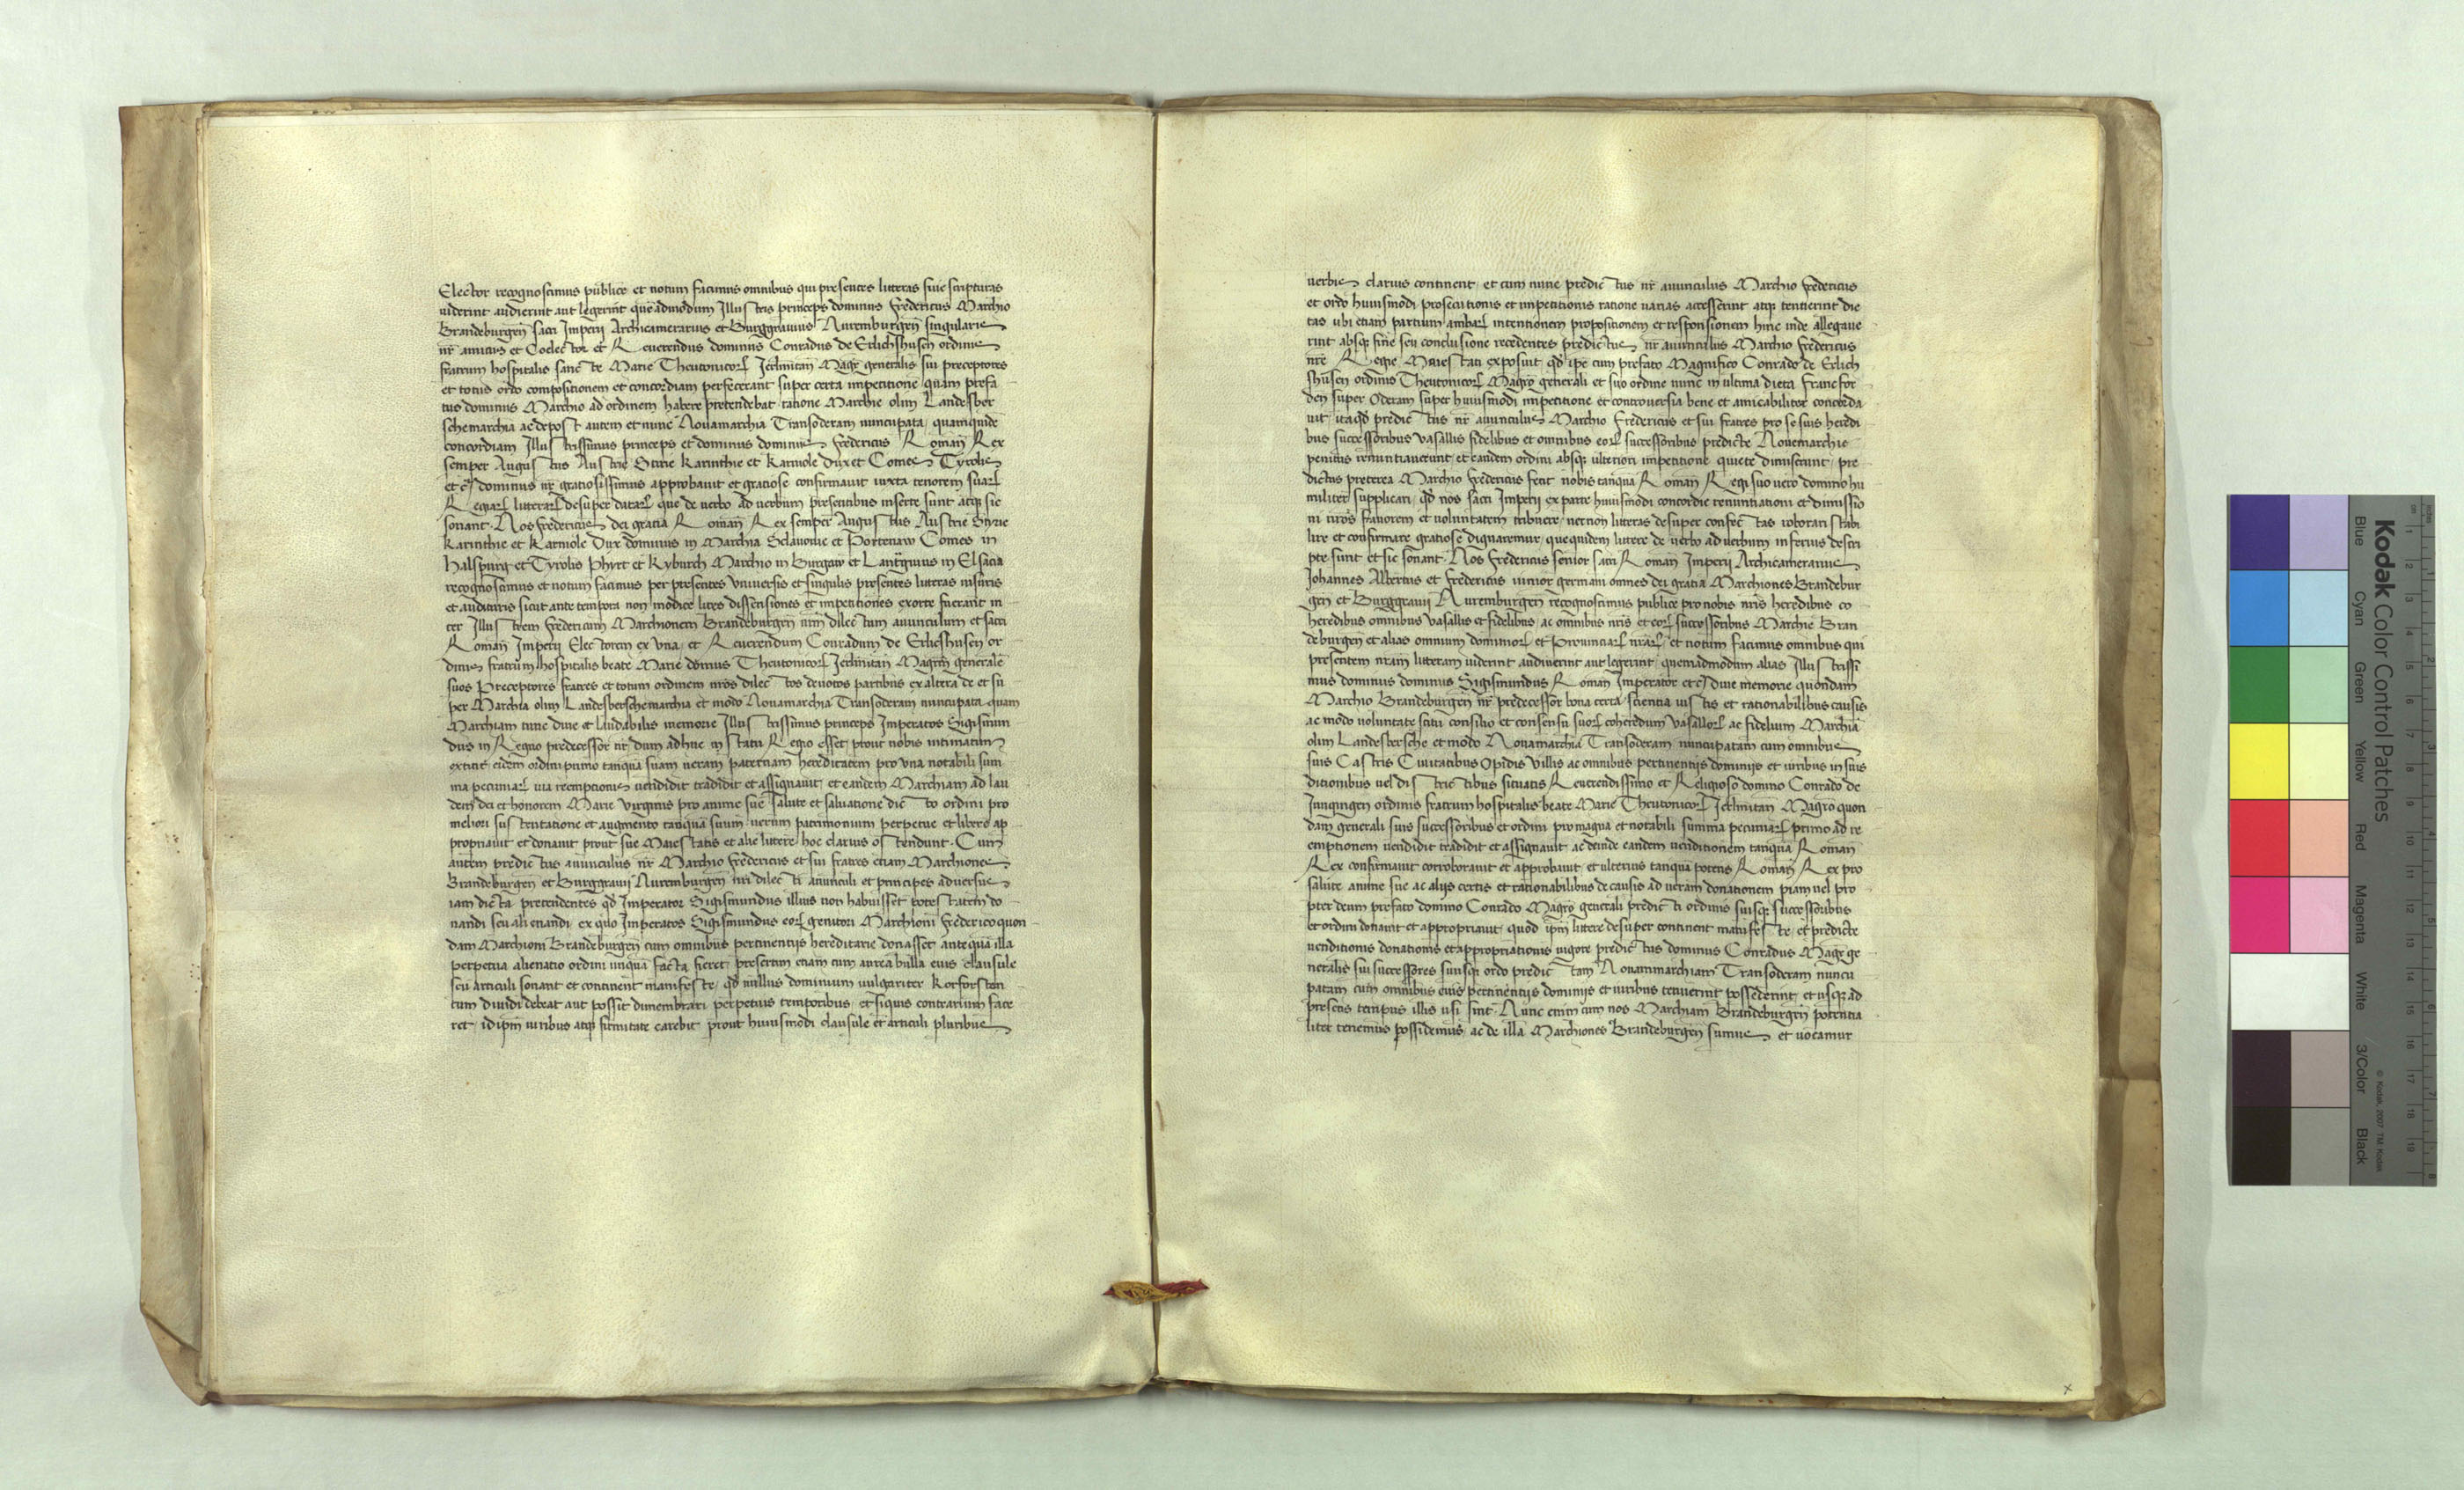 Elector recognoscimus publice et notum facimus omnibus qui presentes litteras siue scripturas
viderint audierint aut legerint quēadmodum Illustris princeps dominus Fredericus Marchio
Brandeburgeñ sacri Imperii Archicamerarius et Burggrauius Nuremburgeñ singularis
nr̄ amicus et Coelector et Reuerendus dominus Conradus de Erlichshusen ordinis
fratrum hospitalis sancte Marie Theutonicoꝝ Jerlmitañ Magr̄ generalis sui preceptores
et totus ordo compositionem et concordiam perfecerant super certa impetitione quam prefa
tus dominus Marchio ad ordinem habere pretendebat ratione Marchie olim Landesber
schemarchia ac depost autem et nunc Nouamarchia Transoderam nuncupata, quamquidē
concordiam Illustrissimus princeps et dominus dominus Fredericus Romañ Rex
semper Augustus Austrie Stirie Karinthie et Karniole Dux et Comes Tyrolis
et c̄ dominus nr̄ gratiosissimus approbauit et gratiose confirmauit iuxta tenorem suaꝝ
Regiaꝝ litteraꝝ desuper dataꝝ que de verbo ad uerbum presentibus inserte sunt atqꝫ sic
sonant. Nos Fredericus dei gratia Romañ Rex semper Augustus Austrie Styrie
Karinthie et Karniole Dux dominus in Marchia Sclauonie et Portenaw Comes in
Habspurg et Tyrolis Phyrt et Kyburch Marchio in Burgaw et Lantgrauius in Elsacia
recognoscimus et notum facimus per presentes vniuersis et singulis presentes litteras uisuris
et audituris sicut ante tempora non modice lites dissensiones et impetitiones exorte fuerant in
ter Illustrem Fredericum Marchionem Brandeburgeñ nr̄m dilectum auunculum et sacri
Romañ Imperij Electorem ex vna, et Reuerendum Conradum de Erlieshusen or
dinis fratrum hospitalis beate Marie domus Theutonicoꝝ Jerlmitañ Magr̄m generalē
suos Preceptores fratres et totum ordinem nr̄os dilectos deuotos partibus ex altera de et su
per Marchia olim Landesberschemarchia et modo Nouamarchia Transoderam nuncupata quam
Marchiam tunc diue et laudabilis memorie Illustrissimus princeps Imperator Sigismun
dus in Regno predecessor nr̄, dum adhuc in statu Regio esset, prout nobis intimatum
extitit, eidem ordini primo tanquā suam ueram paternam hereditatem pro vna notabili sum
ma pecuniaꝝ uia reemptionis uendidit tradidit et assignauit, et eandem Marchiam ad lau
dem dei et honorem Marie virginis pro anime sue salute et saluatione dicto ordini pro
meliori sustentatione et augmento tanquā suum uerum patrimonium perpetue et libere ap
propriauit et donauit prout sue Maiestatis et alie littere hoc clarius ostendunt. Cum
autem predictus auunculus nr̄ Marchio Fredericus et sui fratres etiam Marchiones
Brandeburgeñ et Burggrauij Nuremburgeñ nr̄i dilecti auunculi et principes aduersus
iam dicta pretendentes qd̄ Imperator Sigismundus illius non habuisset potestatem do
nandi seu alienandi, ex quo Imperator Sigismundus eoꝝ genitori Marchioni Frederico quon
dam Marchioni Brandeburgeñ cum omnibus pertinentijs hereditarie donasset antequā illa
perpetua alienatio ordini unquā facta fieret, presertim etiam cum aurea bulla eius clausule
seu articuli sonant et continent manifeste, qd̄ nullus dominium uulgariter Korforsten
tum diuidi debeat aut possit dimembrari perpetuis temporibus, et siquis contrarium face
ret, id ip̄m iuribus atqꝫ firmitate carebit prout huiusmodi clausule et articuli pluribus
uerbis clarius continent, et cum nunc predictus nr̄ auunculus Marchio Fredericus
et ordo huiusmodi prosecutionis et impetitionis ratione varias accesserint atqꝫ tenuerint die
tas ubi etiam partium ambaꝝ intentionem propositionem et responsionem hinc inde allegaue
rint absqꝫ fine seu conclusione recedentes predictus nr̄ auunculus Marchio Fredericus
nr̄e Regie Maiestati exposuit, qd̄ ip̄e cum prefato Magnifico Conrado de Erlich
shusen ordinis Theutonicoꝝ Magr̄o generali et suo ordine nunc in ultima dieta Francfor
den super Oderam super huiusmodi impetitione et controuersia bene et amicabiliter concorda
uit, itaqd̄ predictus nr̄ auunculus Marchio Fredericus et sui fratres pro se suis heredi
bus successoribus vasallis fidelibus et omnibus eoꝝ successoribus predicte Nouemarchie
penitus renuntiauerunt, et eandem ordini absqꝫ ulteriori impetitione quiete dimiserunt, pre
dictus preterea Marchio Fredericus fecit nobis tanquā Romañ Regi suo vero domino hu
militer supplicari, qd̄ nos sacri Imperij ex parte huiusmodi concordie renuntiationi et dimissio
ni nr̄os fauorem et voluntatem tribuere, necnon litteras desuper confectas roborari stabi
lire et confirmare gratiose dignaremur, quequidem littere de verbo ad verbum inferius descri
pte sunt et sic sonant. Nos Fredericus senior sacri Romañ Imperij Archicamerarius
Johannes Albertus et Fredericus iunior germani omnes dei gratia Marchiones Brandebur
geñ et Burggrauij Nuremburgeñ recognoscimus publice pro nobis nr̄is heredibus co
heredibus omnibus vasallis et fidelibus, ac omnibus nr̄is et eoꝝ successoribus Marchie Bran
deburgeñ et alias omnium dominioꝝ et Prouinciaꝝ nr̄aꝝ, et notum facimus omnibus qui
presentem nr̄am litteram viderint audiuerint aut legerint, quemadmodum alias Illustrissi
mus dominus dominus Sigismundus Romañ Imperator et c̄ diue memorie quondam
Marchio Brandeburgeñ nr̄ predecessor bona certa scientia iustis et rationabilibus causis
ac modo voluntate scitu consilio et consensu suoꝝ coheredum vasalloꝝ ac fidelium Marchiā
olim Landesbersche et modo Nouamarchia Transoderam nuncupatam cum omnibus
suis Castris Ciuitatibus Opidis villis ac omnibus pertinentijs dominijs et iuribus in suis
ditionibus uel districtibus situatis Reuerendissimo et Religioso domino Conrado de
Jungingen ordinis fratrum hospitalis beate Marie Theutonicoꝝ Jerlmitañ Magr̄o quon
dam generali suis successoribus et ordini pro magna et notabili summa pecuniaꝝ primo ad re
emptionem uendidit tradidit et assignauit ac deinde eandem uenditionem tanquā Romañ
Rex confirmauit corroborauit et approbauit et ulterius tanquā potens Romañ Rex pro
salute anime sue ac alijs certis et rationabilibus de causis ad ueram donationem piam uel pro
pter deum prefato domino Conrado Magr̄o generali predicti ordinis suisqꝫ successoribus
et ordini donauit et appropriauit, quod ip̄m littere desuper continent manifeste, et predicte
uenditionis donationis et appropriationis uigore predictus dominus Conradus Magr̄ ge
neralis sui successores suusqꝫ ordo predictam Nouammarchiam Transoderam nuncu
patam cum omnibus eius pertinentijs dominijs et iuribus tenuerint possederint, et usqꝫ ad
presens tempus illis usi sint. Nunc etiam cum nos Marchiam Brandeburgeñ potentia
liter tenemus possidemus, ac de illa Marchiones Brandeburgeñ sumus et uocamur
x
Kodak Color Control Patches
Blue
Cyan
Green
Yellow
Red
Magenta
White
3/Color
Black